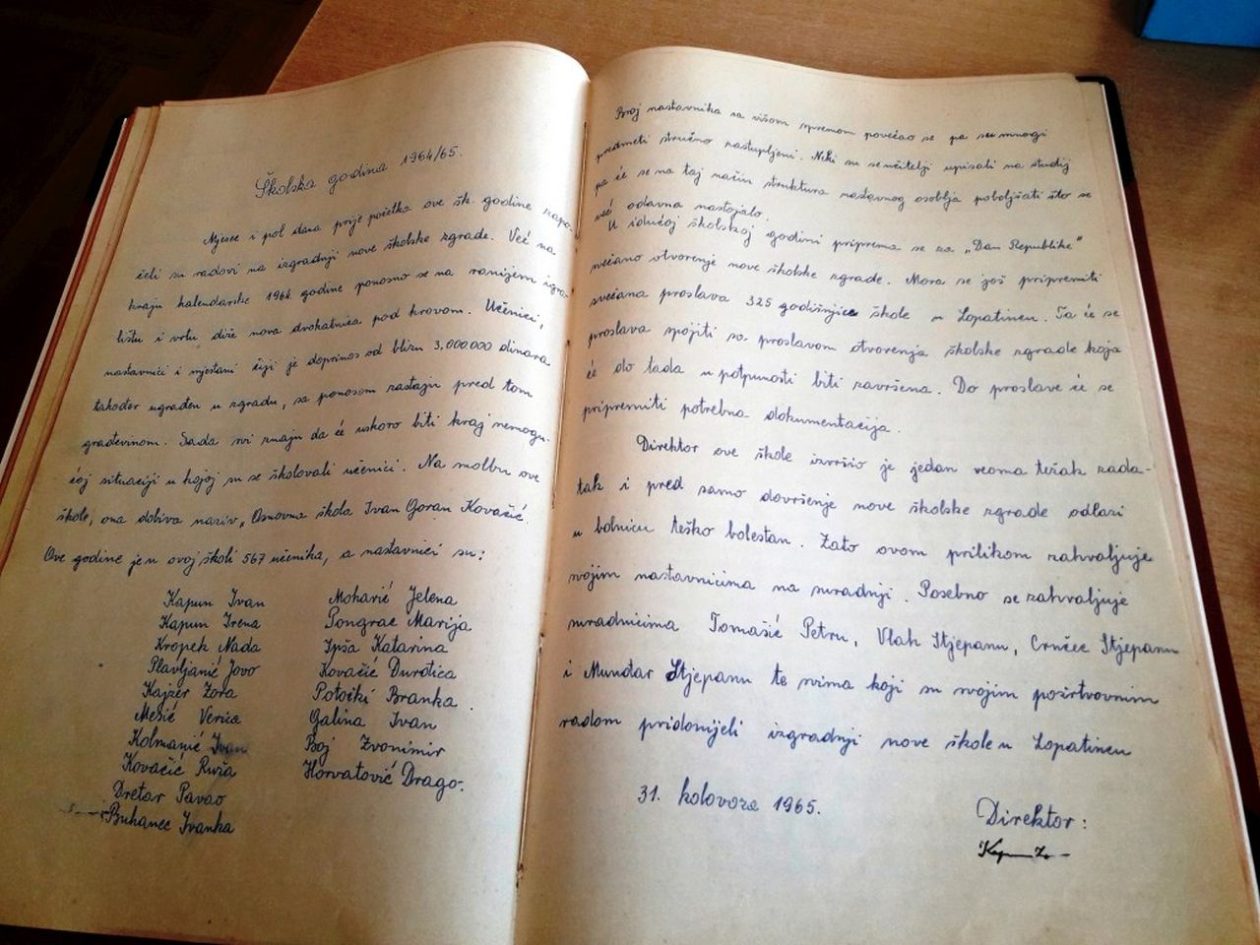 Školska godina 1964/65.
Mjesec i pol dana prije početka ove šk. godine zapo-
čeli su radovi na izgradnji nove školske zgrade. Već na
kraju kalendarske 1964. godine ponosno se na ranijem igra-
lištu i vrtu diže nova dvokatnica pod krovom. Učenici,
nastavnici i mještani čiji je doprinos od blizu 3,000.000 dinara
također ugrađen u zgradu, sa ponosom zastaju pred tom
građevinom. Sada svi znaju da će uskoro biti kraj nemogu-
ćoj situaciji u kojoj su se školovali učenici. Na molbu ove
škole, ona dobiva naziv „Osnovna škola Ivan Goran Kovačić.
Ove godine je u ovoj školi 567 učenika, a nastavnici su:
Kapun Ivan
Kapun Irena
Kropek Nada
Plavljanić Jovo
Kajzer Zora
Mesić Verica
Kolmanić Ivan
Kovačić Ruža
Dretar Pavao
Buhanec Ivanka
Moharić Jelena
Pongrac Marija
Ipša Katarina
Kovačić Đurđica
Potočki Branka.
Galina Ivan
Boj Zvonimir
Horvatović Drago.
Broj nastavnika sa višom spremom povećao se pa su mnogi
predmeti stručno zastupljeni. Neki su se učitelji upisali na studij
pa će se na taj način struktura nastavnog osoblja poboljšati što se
već odavna nastojalo.
U idućoj školskoj godini priprema se za „Dan Republike"
svečano otvorenje nove školske zgrade. Mora se još pripremiti
svečana proslava 325 godišnjice škole u Lopatincu. Ta će se
proslava spojiti sa proslavom otvorenja školske zgrade koja
će do tada u potpunosti biti završena. Do proslave će se
pripremiti potrebna dokumentacija.
Direktor ove škole izvršio je jedan veoma težak zada-
tak i pred samo dovršenje nove školske zgrade odlazi
u bolnicu teško bolestan. Zato ovom prilikom zahvaljuje
svojim nastavnicima na suradnji. Posebno se zahvaljuje
suradnicima Tomašić Petru, Vlah Stjepanu, Crnčec Stjepanu
i Mundar Stjepanu te svima koji su svojim požrtvovnim
radom pridonijeli izgradnji nove škole u Lopatincu
31. kolovoza 1965.
Direktor: